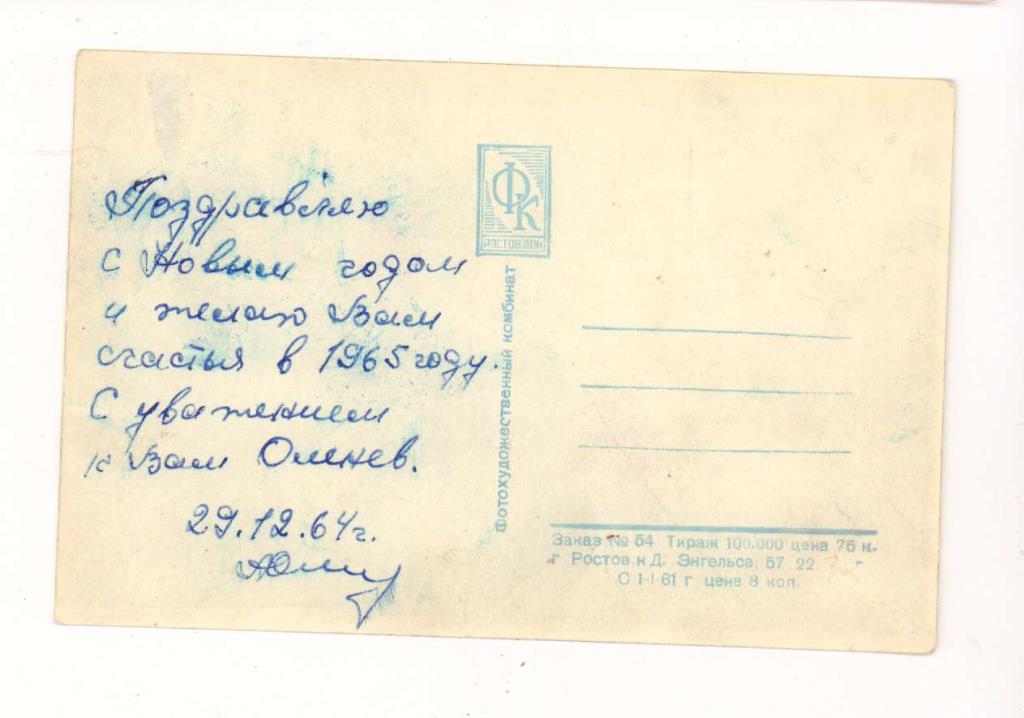 Поздравляю
с Новым годом
и желаю Вам
счастья в 1965 году.
С уважением
к Вам Оленев.
29.12.64г.
ФК
РОСТОВ ДОН
Фотохудожественный комбинат
Заказ № 54 Тираж 100.000 цена 75 к.
г Ростов н Д. Энгельса, 57 22
С 1-I-61 г цена 8 коп.